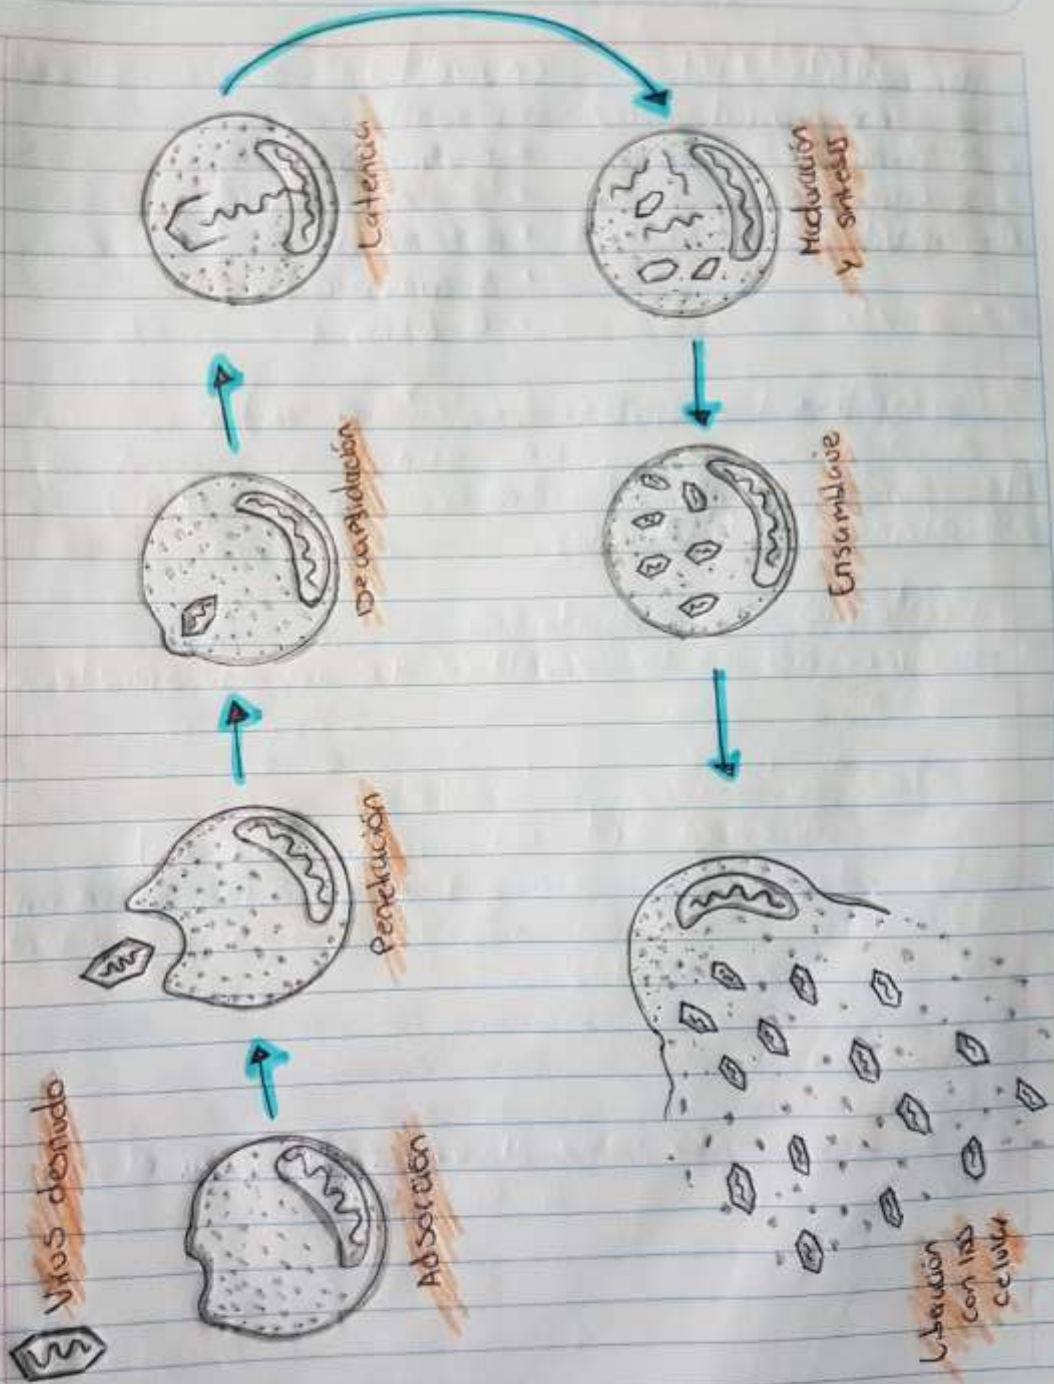 Virus desnudo
Adsorción
Penetración
Decapsidación
Latencia
Maduración
y síntesis
Ensamblaje
Liberación
con lisis
celular